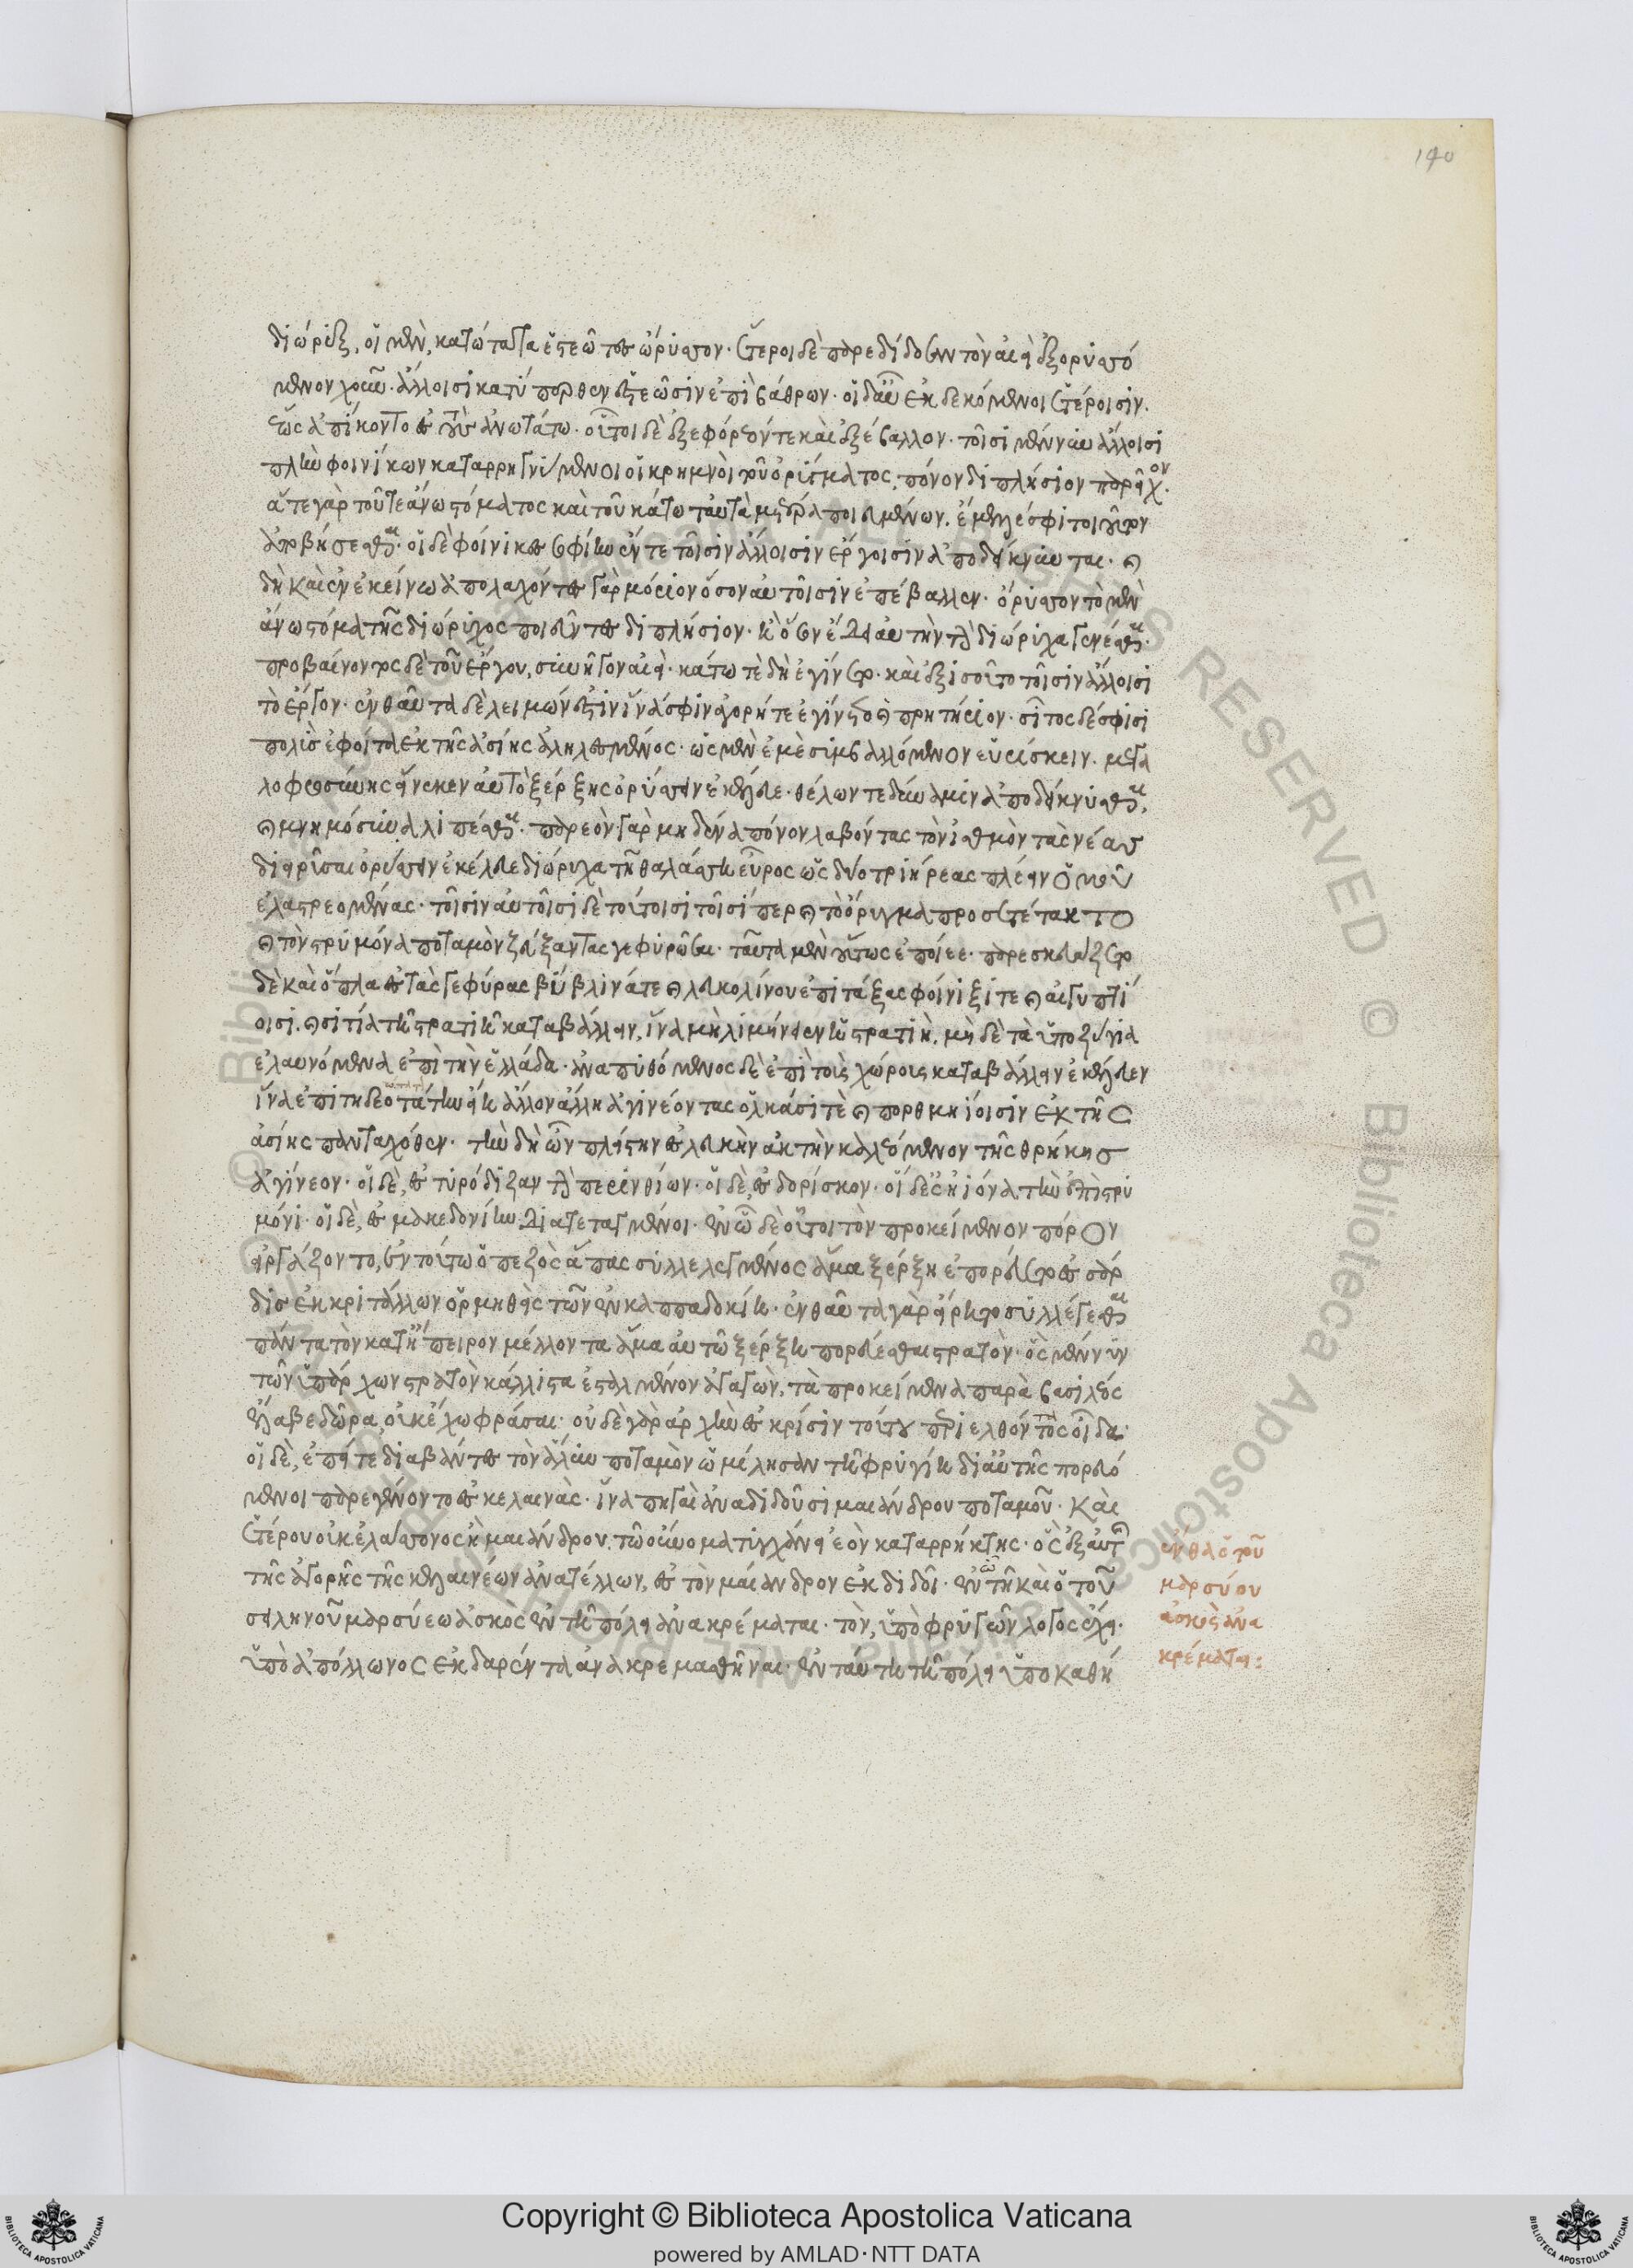 190
διώρυξ, οἱ μὲν, κατώτατα ἑστεῶτες ὤρυσσον· ἕτεροι δὲ παρεδίδοσαν τὸν αἰεὶ ἐξορυσσό
μενον χοῦν· ἄλλοισι κατύπερθεν ἑστεῶσιν ἐπὶ βάθρων· οἱ δ' αὖ ἐκδεκόμενοι ἑτέροισιν.
ἕως ἀπίκοντο ἐς τοὺς ἀνωτάτω· οὗτοι δὲ ἐξεφόρεόν τε καὶ ἐξέβαλλον· τοῖσι μέν νυν ἄλλοισι
πλὴν φοινίκων καταρρηγνύμενοι οἱ κρημνοὶ τοῦ ὀρύγματος, πόνον διπλήσιον παρεῖχον·
ἅτε γὰρ τοῦ τε ἄνω στόματος καὶ τοῦ κάτω τὰ αὐτὰ μέτρα ποιευμένων. ἔμελλέ σφι τοιοῦτον
ἀποβήσεσθαι· οἱ δὲ φοίνικες σοφίην ἔν τε τοῖσιν ἄλλοισιν ἔργοισιν ἀποδείκνυνται· καὶ
δὴ καὶ ἐν ἐκείνω ἀπολαχόντες γὰρ μόριον ὅσον αὐτοῖσιν ἐπέβαλλεν· ὤρυσσον τὸ μὲν
ἄνω στόμα τῆς διώρυχος ποιεῦντες διπλήσιον· ἢ ὅσον ἔδει αὐτὴν τὴν διώρυχα γενέσθαι·
προβαίνοντος δὲ τοῦ ἔργου, συνῆγον αἰεί· κάτω τε δὴ ἐγίνετο· καὶ ἐξισοῦτο τοῖσιν ἄλλοισι
τὸ ἔργον· ἐνθαῦτα δὲ λειμών ἐστιν ἵνα σφιν ἀγορή τε ἐγίνετο καὶ πρητήριον· σῖτος δέ σφισι
πολλὸς ἐφοίτα ἐκ τῆς ἀσίης ἀληλεσμένος· ὡς μὲν ἐμὲ συμβαλλόμενον εὑρίσκειν. μεγα
λοφροσύνης εἵνεκεν αὐτὸ ξέρξης ὀρύσσειν ἐκέλευε· θέλων τε δύναμιν ἀποδείκνυσθαι,
καὶ μνημόσυνα λιπέσθαι· παρεὸν γὰρ μηδένα πόνον λαβόντας τὸν ἰσθμὸν τὰς νέας
διειρύσαι ὀρύσσειν ἐκέλευε διώρυχα τῆ θαλάσση εὖρος ὡς δύο τριήρεας πλέειν ὁμοῦ
ἐλαστρεομένας· τοῖσιν αὐτοῖσι δὲ τούτοισι τοῖσί περ καὶ τὸ ὄρυγμα προσετέτακτο
καὶ τὸν στρυμόνα ποταμὸν ζεύξαντας γεφυρῶσαι· ταῦτα μὲν οὕτως ἐποίεε· παρεσκευάζετο
δὲ καὶ ὅπλα ἐς τὰς γεφύρας βύβλινά τε καὶ λευκολίνου ἐπιτάξας φοίνιξί τε καὶ αἰγυπτί
οισι. καὶ σιτία τῆ στρατιῆ καταβάλλειν, ἵνα μὴ λιμήνειεν ἡ στρατιὴ. μὴ δὲ τὰ ὑποζύγια
ἐλαυνόμενα ἐπὶ τὴν ἑλλάδα· ἀναπυθόμενος δὲ ἐπὶ τοὺς χώρους καταβάλλειν ἐκέλευεν
ἵνα ἐπιτηδεότατον εἴη ἄλλον ἄλλη ἀγινέοντας ὁλκάσι τὲ καὶ πορθμηίοισιν ἐκ τῆς
ἀσίης πανταχόθεν· τὴν δὴ ὦν πλείστην ἐς λευκὴν ἀκτὴν καλεομένην τῆς θρήκης
ἀγίνεον· οἱ δὲ, ἐς τυρόδιζαν τὴν περινθίων· οἱ δὲ, ἐς δορίσκον· οἱ δὲ ἐς ἠϊόνα τὴν ἐπὶ στρυ
μόνι· οἱ δὲ, ἐς μακεδονίην διατεταγμένοι· ἐν ᾧ δὲ οὗτοι τὸν προκείμενον πόρον
εἰργάζοντο, ἐν τούτω ὁ πεζὸς ἅπας συλλελεγμένος ἅμα ξέρξη ἐπορεύετο ἐς σάρ
δις ἐκ κριτάλλων ὁρμηθεὶς τῶν ἐν καππαδοκίη· ἐνθαῦτα γὰρ εἴρητο συλλέγεσθαι
πάντα τὸν κατ' ἤπειρον μέλλοντα ἅμα αὐτῶ ξέρξη πορεύεσθαι στρατόν· ὃς μέν νυν
τῶν ὑπάρχων στρατὸν κάλλιστα ἐσταλμένον ἀγαγὼν, τὰ προκείμενα παρὰ βασιλέος
ἔλαβε δῶρα, οὐκ ἔχω φράσαι· οὐδὲ γὰρ ἀρχὴν ἐς κρίσιν τούτου πέρι ἐλθόντας οἶδα·
οἱ δὲ, ἐπείτε διαβάντες τὸν ἅλυν ποταμὸν ὡμίλησαν τῆ φρυγίη δι' αὐτῆς πορευό
μενοι παρεγένοντο ἐς κελαινὰς· ἵνα πηγαὶ ἀναδιδοῦσι μαιάνδρου ποταμοῦ· καὶ
ἑτέρου οὐκ ἐλάσσονος ἢ μαιάνδρου. τῶ οὔνομα τυγχάνει ἐὸν καταρρήκτης· ὃς ἐξ αὐτῆς
τῆς ἀγορῆς τῆς κελαινέων ἀνατέλλων, ἐς τὸν μαίανδρον ἐκδιδοῖ· ἐν τῆ καὶ ὁ τοῦ
σειληνοῦ μαρσύεω ἀσκὸς ἐν τῆ πόλει ἀνακρέμαται· τὸν, ὑπὸ φρυγῶν λόγος ἔχει·
ὑπὸ ἀπόλλωνος ἐκδαρέντα ἀνακρεμασθῆναι· ἐν ταύτη τῆ πόλει ὑποκαθή
ἔνθα ὁ τοῦ
μαρσύου
ἀσκὸς ἀνα
κρέμαται:
Copyright © Biblioteca Apostolica Vaticana
powered by AMLAD·NTT DATA